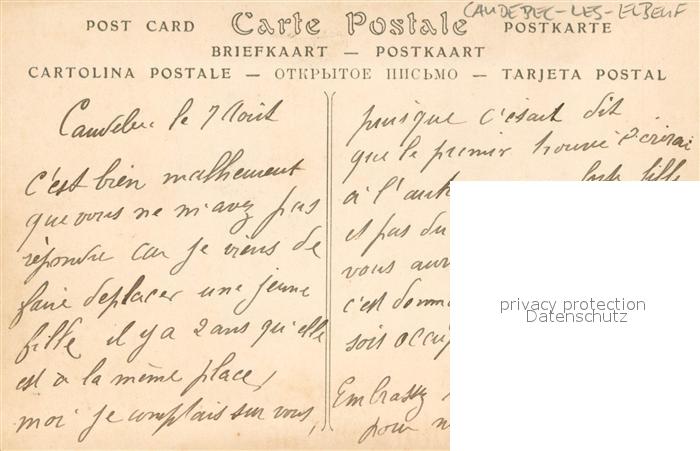 CAUDEBEC-LES-ELBEUF
POST CARD Carte Postale POSTKARTE
BRIEFKAART — POSTKAART
CARTOLINA POSTALE — ОТКРЫТОЕ ПИСЬМО — TARJETA POSTAL
Caudebec le 7 Aout
c'est bien malheureux
que vous ne m'avez pas
répondre car je viens de
faire deplacer une jeune
fille, il y a 2 ans qu'elle
est à la même place,
moi je comptais sur vous,
puisque c'etait dit
que le premier trouvé ecrirai
à l'aut
et pas du
vous aur
c'est domm
sois occup
Embrassez
pour n
privacy protection
Datenschutz